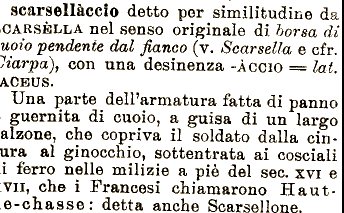 scarsellàccio detto per similitudine da
CARSÈLLA nel senso originale di borsa di
uoio pendente dal fianco (v. Scarsella e cfr.
Ciarpa), con una desinenza -ÀCCIO = lat.
ACEUS.
Una parte dell'armatura fatta di panno
guernita di cuoio, a guisa di un largo
alzone, che copriva il soldato dalla cin-
ura al ginocchio, sottentrata ai cosciali
i ferro nelle milizie a piè del sec. XVI e
VII, che i Francesi chiamarono Haut-
e-chasse: detta anche Scarsellone.